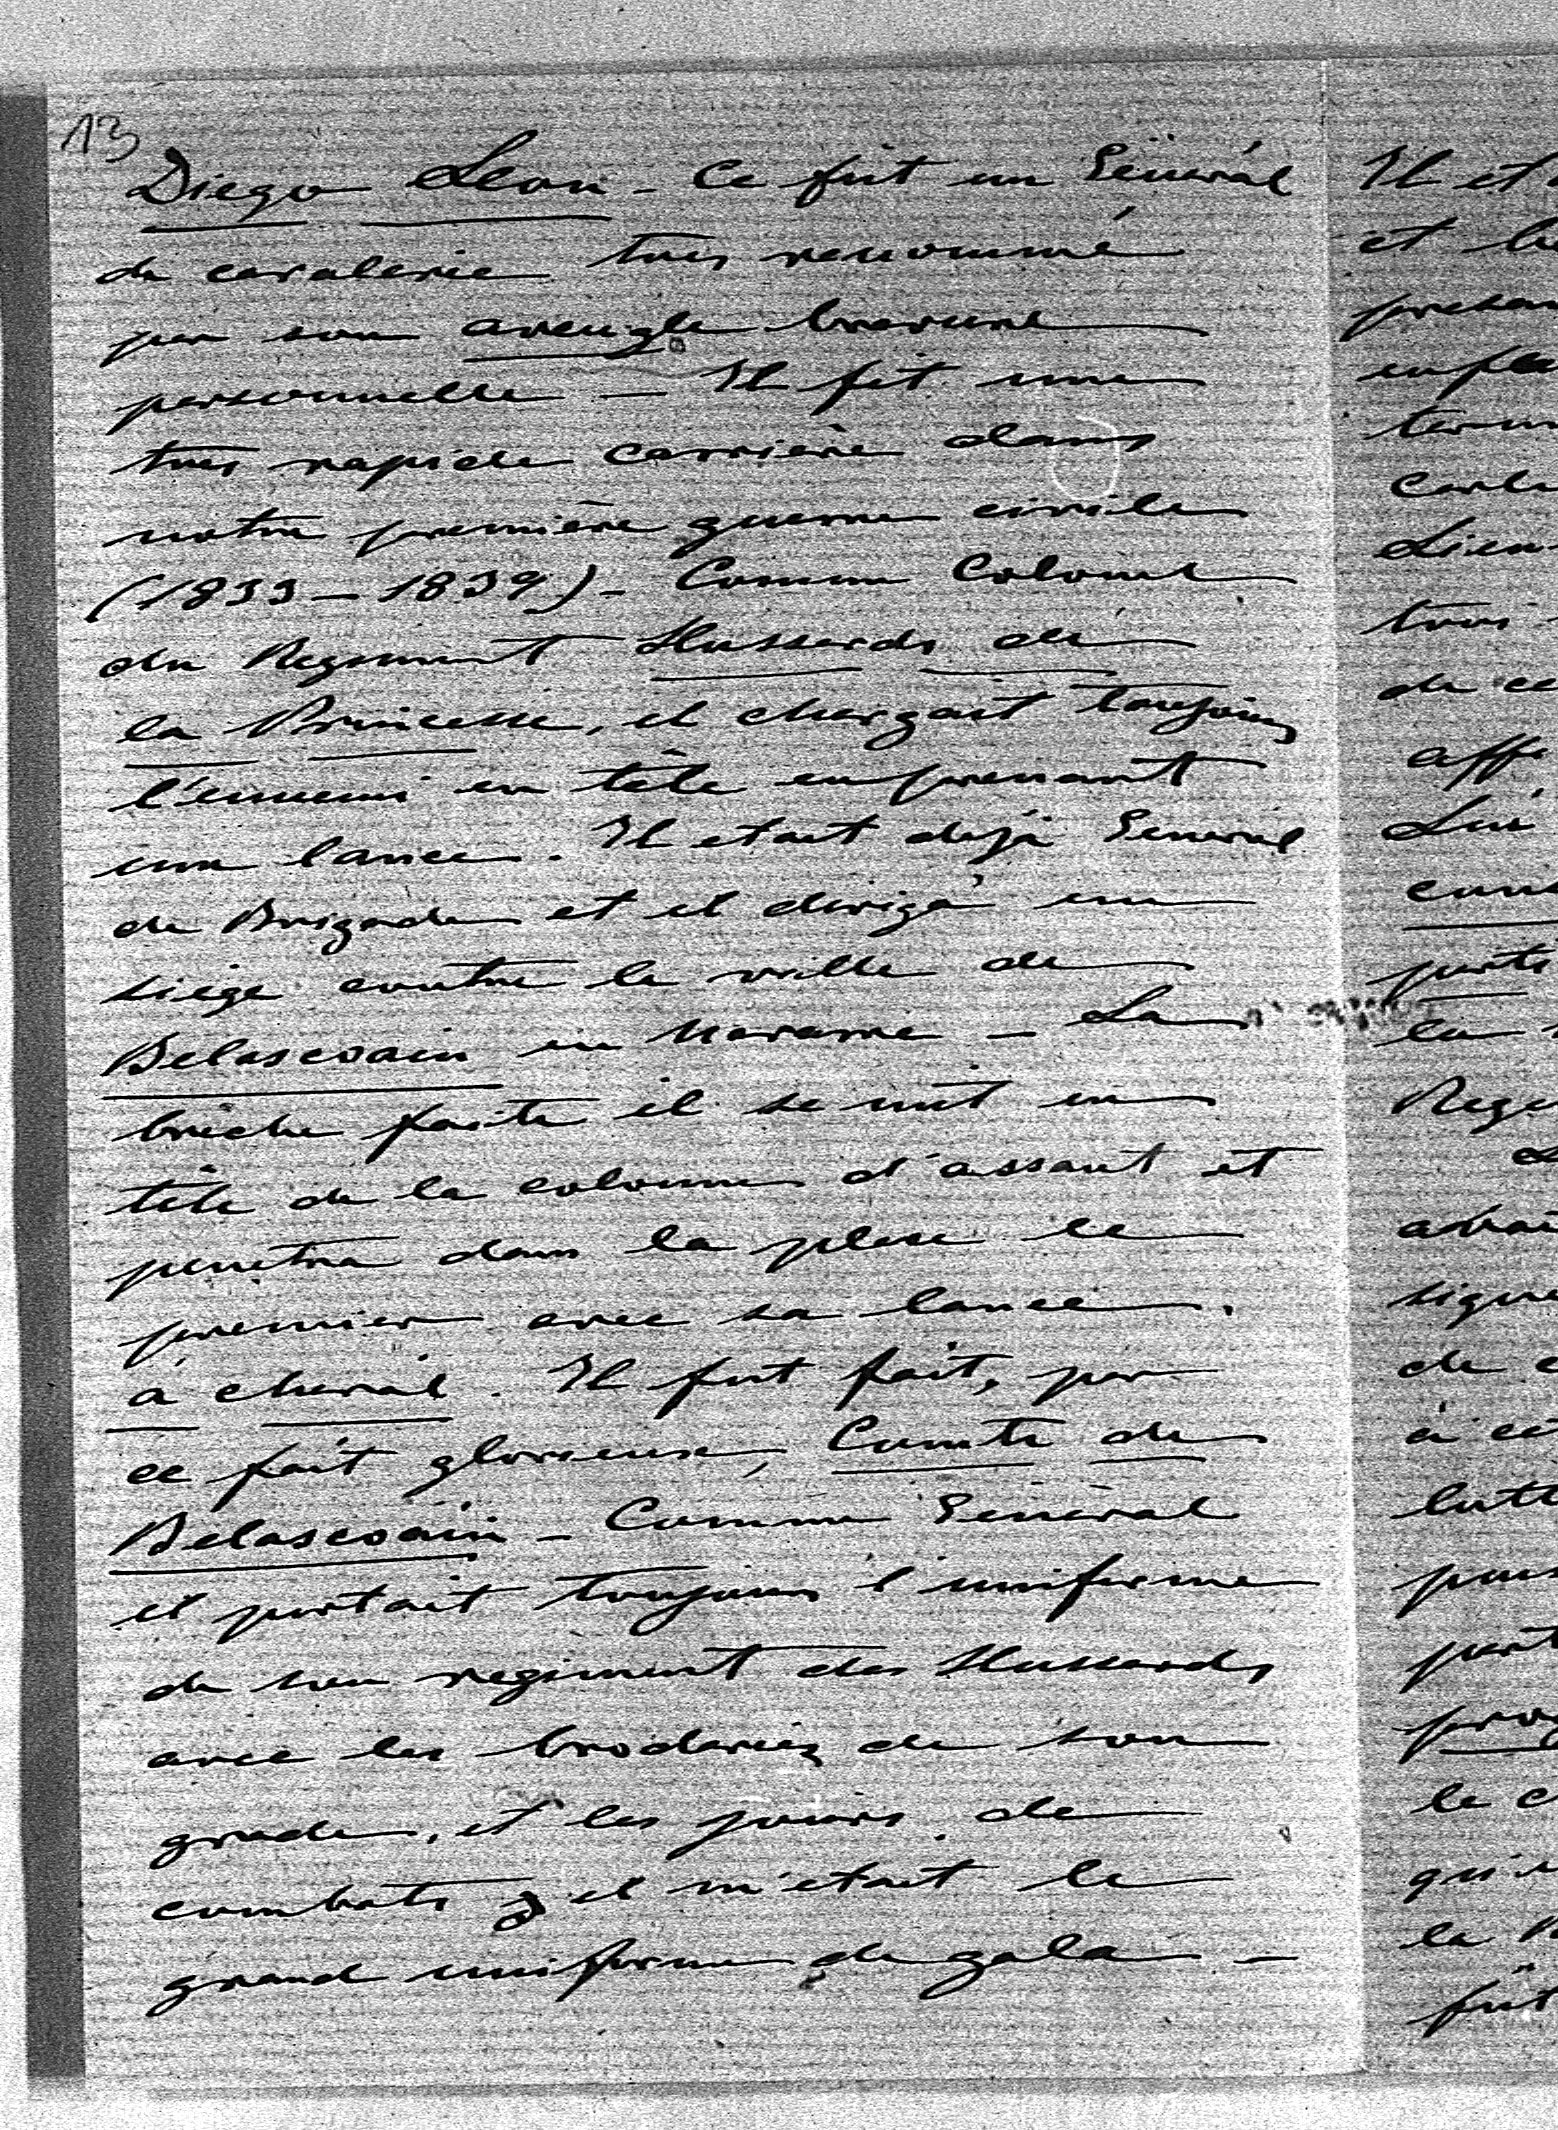 13
Diego Leon - Ce fut un Général
de cavalerie très renommé
par son aveugle bravoure
personnelle — Il fit une
très rapide carrière dans
notre première guerre civile
(1833 - 1839) - Comme Colonel
du Regiment Hussards de
la Princesse, il chargait toujours
l'ennemi en tête en prenant
une lance. Il etait dejà General
de Brigade et il dirigá un
siège contre la ville de
Belascoain en Navarre - La
brèche faite il se mit en
tête de la colonne d'assaut et
penetra dans la place le
premier avec sa lance.
á cheval. Il fut fait, par
ce fait glorieux, Comte de
Belascoain - Comme Général
il portait toujours l'uniforme
de son regiment des Hussards
avec les broderies de son
grade, et les jours de
combats il m'etait le
grand uniforme de gala -
Il et
et
de ce
Lui
la
Rege
signe
de
lutt
le
la
fût